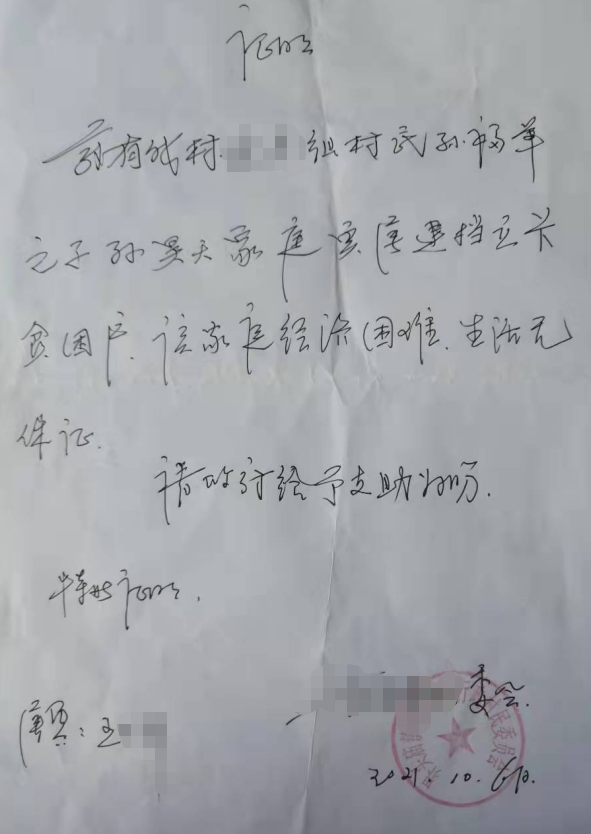 证明
兹有我村 组村民孙福革
之子孙昊天家庭实属建档立卡
贫困户.该家庭经济困难.生活无
保证.
请政府给予支助为盼.
特此证明.
委会.
属实:王
2021.10.6日.